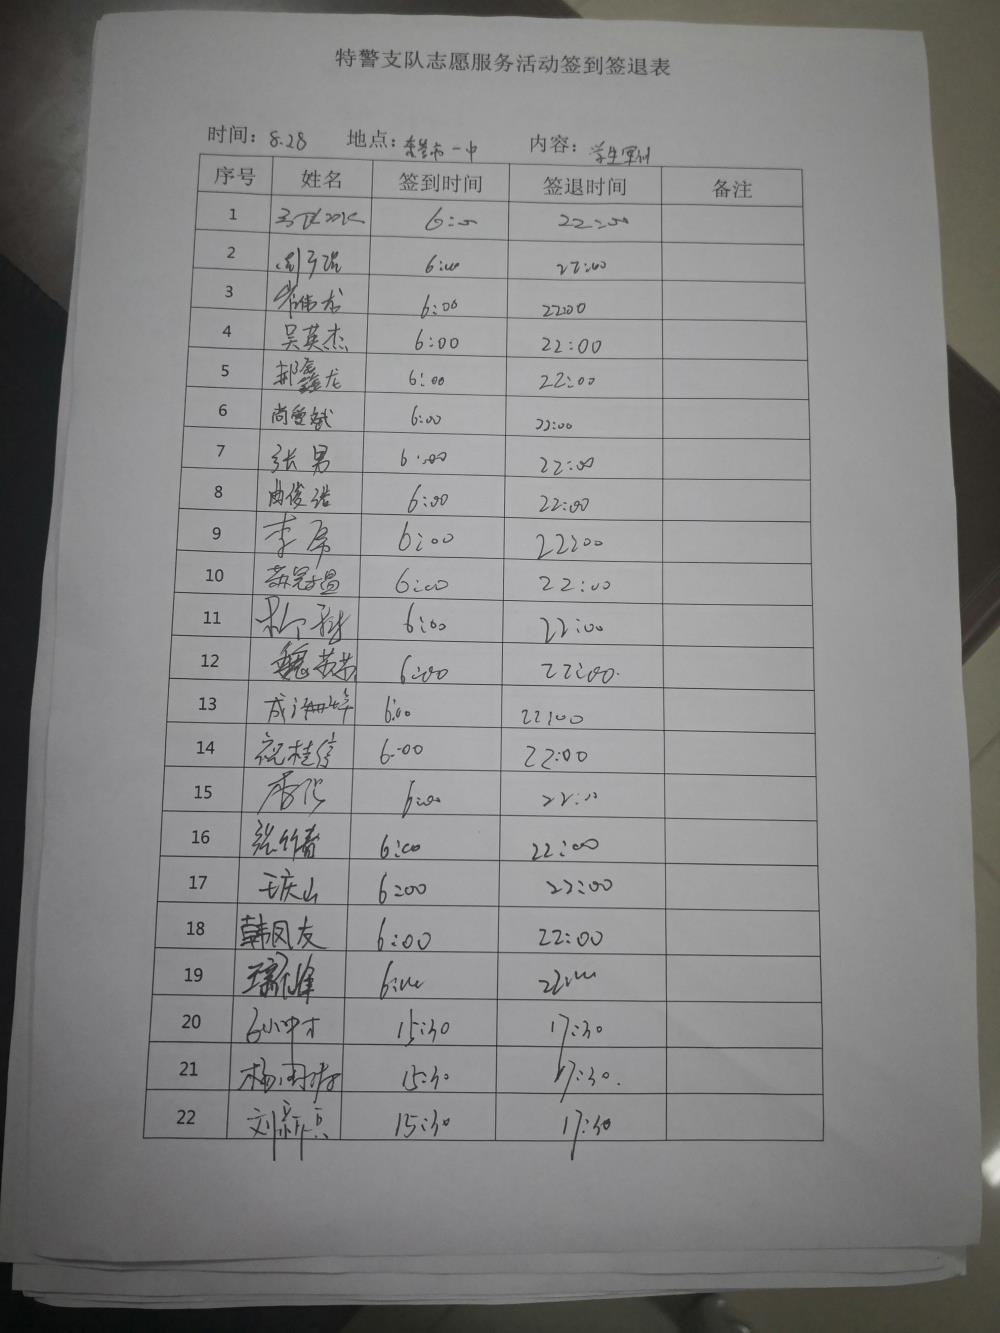 特警支队志愿服务活动签到签退表
时间：8.28 地点：莱芜市一中 内容：学生军训
序号 姓名 签到时间 签退时间 备注
1 6:00 22:00
2 6:00 22:00
3 伟龙 6:00 22:00
4 吴英杰 6:00 22:00
5 郝鑫龙 6:00 22:00
6 尚曾斌 6:00 22:00
7 张男 6:00 22:00
8 曲俊浩 6:00 22:00
9 李 6:00 22:00
10 苏冠 6:00 22:00
11 柳 6:00 22:00
12 魏 6:00 22:00
13 成海 6:00 22:00
14 祝桂 6:00 22:00
15 6:00 22:00
16 张竹青 6:00 22:00
17 王庆山 6:00 22:00
18 韩凤友 6:00 22:00
19 6:00 22:00
20 15:30 17:30
21 杨 15:30 17:30.
22 刘新 15:30 17:30